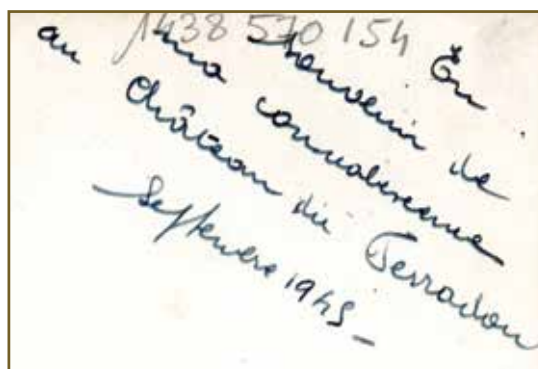 1438 570 154
En
souvenir de
ma connaissance
au Château du Terradou
Septembre 1945_